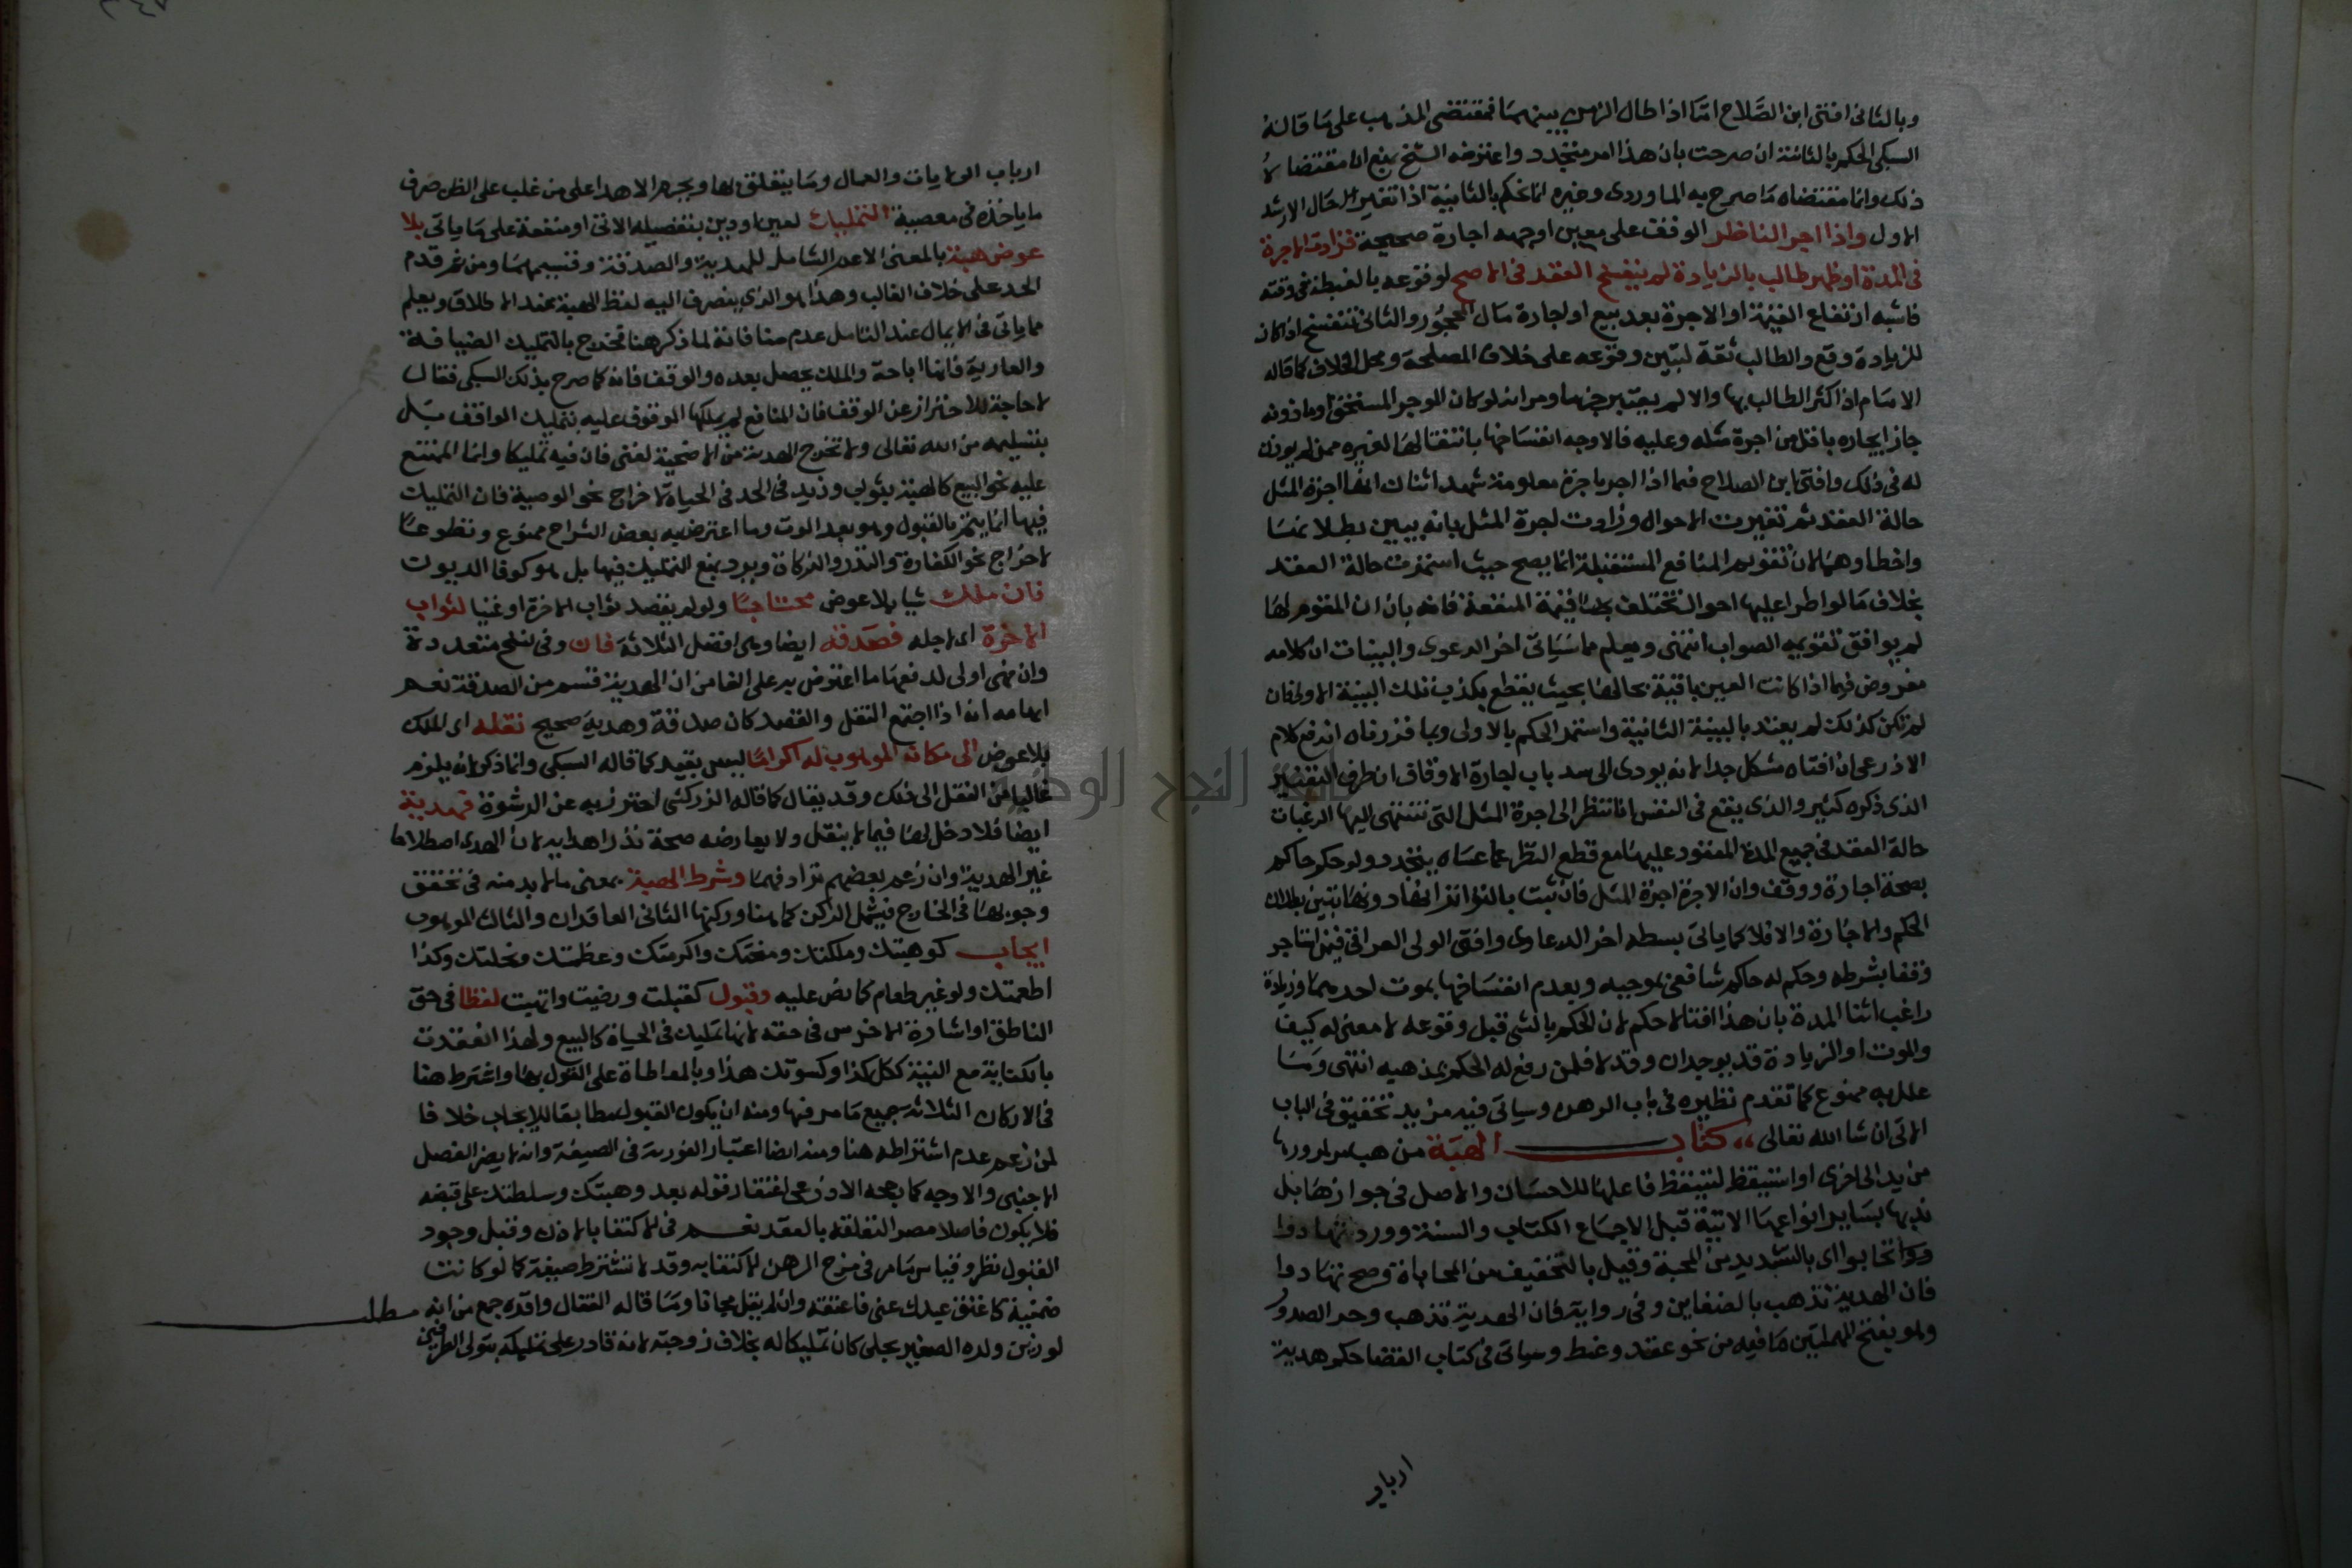 وبالثاني افتى ابن الصَّلاح امَّا اذا طال الزمن بينهما فمقتضى المذهب على ما قاله
السبكي الحكم بالثانية ان صرحت بان هذا امر متجدد واعترضه الشيخ بمنع ان مقتضاه
ذلك وانما مقتضاه ما صرح به الماوردي وغيره انما نحكم بالثانية اذا تغير حال الارشد
الاول واذا اجر الناظر الوقف على معين او جهة اجارة صحيحة فزادت الاجرة
في المدة او ظهر طالب بالزيادة لم ينفسخ العقد في الاصح لوقوعه بالغبطة في وقته
فاشبه ارتفاع القيمة او الاجرة بعد بيع او اجارة مال المحجور والثاني تنفسخ اذا كان
للزيادة وقع والطالب ثقة لتبين وقوعه على خلاف المصلحة ومحل الخلاف كما قاله
الامام اذا كثر الطالب بها والا لم يعتبر جزما ومر انه لو كان الموجر المستحق او ماذونه
جاز ايجاره باقل من اجرة مثله وعليه فالاوجه انفساخها بانتقالها لغيره ممن لم يوذن
له في ذلك وافتى ابن الصلاح فيما اذا اجر باجرة معلومة شهد اثنان انها اجرة المثل
حالة العقد ثم تغيرت الاحوال وزادت اجرة المثل بانه يتبين بطلانها
واخطا وهما لان تقويم المنافع المستقبلة انما يصح حيث استمرت حالة العقد
بخلاف ما لو طرا عليها احوال تختلف بها قيمة المنفعة فانه بان ان المقوم لها
لم يوافق تقويمه الصواب انتهى ويعلم مما سياتي اخر الدعوى والبينات ان كلامه
مفروض فيما اذا كانت العين باقية بحالها بحيث يقطع بكذب تلك البينة الاولى فان
لم تكن كذلك لم يعتد بالبينة الثانية واستمر الحكم بالاولى وبما قررناه اندفع كلام
الاذرعي ان افتاه مشكل جدا لانه يودي الى سد باب اجارة الاوقاف ان طرف التغيير
الذي ذكره كثير والذي يقع في النفس انا ننظر الى اجرة المثل التي تنتهي اليها الرغبات
حالة العقد في جميع المدة المعقود عليها مع قطع النظر عما عساه يتجدد ولو حكم حاكم
بصحة اجارة ووقف وان الاجرة اجرة المثل فان ثبت بالتواتر انها دونها تبين بطلان
الحكم والاجارة والا فلا كما ياتي بسطه اخر الدعاوى وافتى الولي العراقي فيمن استاجر
وقفا بشرطه وحكم له حاكم شافعي بموجبه وبعدم انفساخها بموت احدهما وزيادة
راغب اثنا المدة بان هذا افتا لا حكم لان الحكم بالشي قبل وقوعه لا معنى له كيف
والموت او الزيادة قد يوجدان وقد لا فلمن رفع له الحكم بمذهبه انتهى وما
علل به ممنوع كما تقدم نظيره في باب الرهن وسياتي فيه مزيد تحقيق في الباب
الاتي ان شا الله تعالى كتاب الهبة من هب مر لمرورها
من يد الى اخرى او استيقظ لتيقظ فاعلها للاحسان والاصل في جوازها بل
ندبها بساير انواعها الاتية قبل الاجماع الكتاب والسنة وورد تهادوا
تحابوا اي بالتشديد من المحبة وقيل بالتخفيف من المحاباة وصح تهادوا
فان الهدية تذهب بالضغاين وفي رواية فان الهدية تذهب وحر الصدور
وهو بفتح المهملتين ما فيه من نحو حقد وغيظ وسياتي في كتاب القضا حكم هدية
ارباب
ارباب الولايات والعمال وما يتعلق بها ويحرم الاهدا على من غلب على الظن صرف
ما ياخذه في معصية التمليك لعين او دين بتفصيله الاتي او منفعة على ما ياتي بلا
عوض هبة بالمعنى الاعم الشامل للهدية والصدقة وقسيمهما ومن ثم قدم
الحد على خلاف الغالب وهذا هو الذي ينصرف اليه لفظ الهبة عند الاطلاق ويعلم
مما ياتي في الايمان عند التامل عدم منافاته لما ذكر هنا فخرج بالتمليك الضيافة
والعارية فانها اباحة والملك يحصل بعده والوقف فانه كما صرح بذلك السبكي فقال
لا حاجة للاحتراز عن الوقف فان المنافع لم يملكها الموقوف عليه بتمليك الواقف بل
بتسليمه من الله تعالى ولا تخرج الهدية من الاضحية لغني فان فيه تمليكا وانما الممتنع
عليه نحو البيع كالهبة بثواب وزيد في الحد في الحياة لاخراج نحو الوصية فان التمليك
فيها انما يتم بالقبول وهو بعد الموت وما اعترض به بعض الشراح ممنوع وتطوعا
لاخراج نحو الكفارة والنذر والزكاة ويرد بمنع التمليك فيها بل هو كوفا الديون
فان ملك شيا بلا عوض محتاجا ولو لم يقصد ثواب الاخرة او غنيا لثواب
الاخرة اي لاجله فصدقة ايضا وهي افضل الثلاثة فان وفي نسخ متعددة
وان فهي اولى لدفعها ما اعترض به على الفا من ان الهدية قسم من الصدقة نعم
ايهامه انه اذا اجتمع النقل والقصد كان صدقة وهدية صحيح نقله اي الملك
بلا عوض الى مكانه الموهوب له اكراما ليس بقيد كما قاله السبكي وانما ذكر لانه يلزم
غالبا من النقل الى ذلك وقد يقال كما قاله الزركشي احترز به عن الرشوة فهدية
ايضا فلا دخل لها فيما لا ينقل ولا يعارضه صحة نذر اهدايه لان الهدي اصطلاحا
غير الهدية وان زعم بعضهم ترادفهما وشرط الهبة بمعنى ما لا بد منه في تحقق
وجودها في الخارج فيشمل الركن كما هنا وركنها الثاني العاقدان والثالث الموهوب
ايجاب كوهبتك وملكتك ومنحتك واكرمتك وعظمتك ونحلتك وكذا
اطعمتك ولو غير طعام كما نص عليه وقبول كقبلت ورضيت واتهبت لفظا في حق
الناطق او اشارة الاخرس في حقه لانها تمليك في الحياة كالبيع ولهذا انعقدت
بالكتابة مع النية ككل كذا وكسوتك هذا وبالمعاطاة على القول بها واشترط هنا
في الاركان الثلاثة جميع ما مر فيها ومنه ان يكون القبول مطابقا للايجاب خلافا
لمن زعم عدم اشتراطه هنا ومنه ايضا اعتبار الفورية في الصيغة وانه لا يضر الفصل
الاجنبي والاوجه كما بحثه الاذرعي اغتفار قوله بعد وهبتك وسلطتك على قبضه
فلا يكون فاصلا مضرا لتعلقه بالعقد نعم في الاكتفا بالاذن وقبل وجود
القبول نظر وقياس ما مر في مزج الرهن الاكتفا به وقد لا تشترط صيغة كما لو كانت
ضمنية كاعتق عبدك عني فاعتقه وان لم يقل مجانا وما قاله القفال واقره جمع من انه مطلب
لو زين ولده الصغير بحلي كان تمليكا له بخلاف زوجته لانه قادر على تمليكه بتولي الطرفين